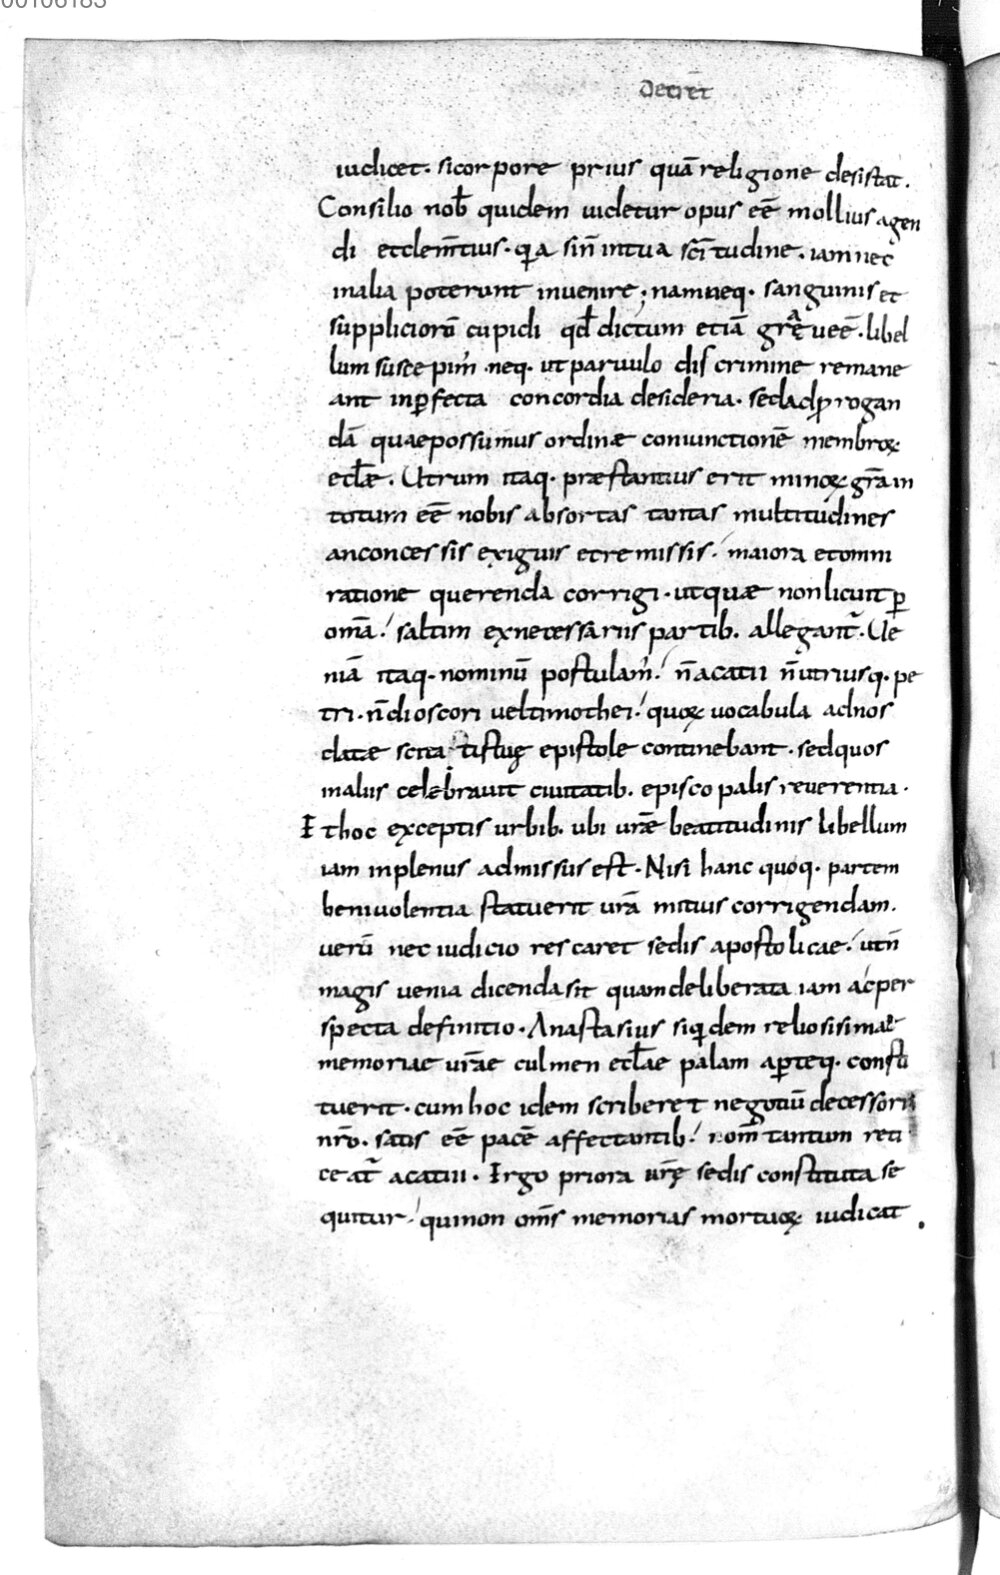 00106183
Decret̄
iudicet. sicorpore prius quā religione desistat.
Consilio nob̄ quidem uidetur opus eē mollius agen
di etclem̄tius. q̇a sin̄ intua sc̄itudine. iam nec
malia poterunt inuenire; namneq. sanguinis et
supplicioꝝ cupidi qd̄ dictum etiā grę̄ uēe. libel
lum suscepim̄. neq. ut paruulo discrimine remane
ant inꝑfecta concordia desideria. sedadꝓrogan
dā quaepossumus ordinæ coniunctionē membroꝝ
eclǣ. Utrum itaq. præstantius erit minoꝝ gr̄am
totum eē nobis absortas tantas multitudines
anconcessis exiguis etremissis. maiora etomni
ratione querenda corrigi. utquæ nonlicuit ꝑ
om̄a. saltim exnecessariis partib. allegant̄. Ue
niā itaq. nominū postulam̄. n̄acatii n̄utriusq. pe
tri. n̄dioscori ueltimothei. quoꝝ uocabula adnos
datæ epistole continebant. sedquos
malus celebrauit ciuitatib. episcopalis reuerentia.
Ethoc exceptis urbib. ubi ur̄æ beatitudinis libellum
iam inplenus admissus est. Nisi hanc quoq. partem
beniuolentia statuerit ur̄a mitius corrigendam.
uerū nec iudicio rescaret sedis apostolicae. utn̄
magis uenia dicendasit quamdeliberata iam acper
specta definitio. Anastasius siq̇dem reliosisimae
memoriae ur̄ae culmen ecl̄ae palam aꝑteq. consti
tuerit. cumhoc idem scriberet negotiū decessori
nr̄o. satis eē pacē affectantib. nom̄ tantum reti
ceat̄ acatii. Ergo priora ur̄ę sedis constituta se
quitur. quinon om̄s memorias mortuoꝝ iudicat.